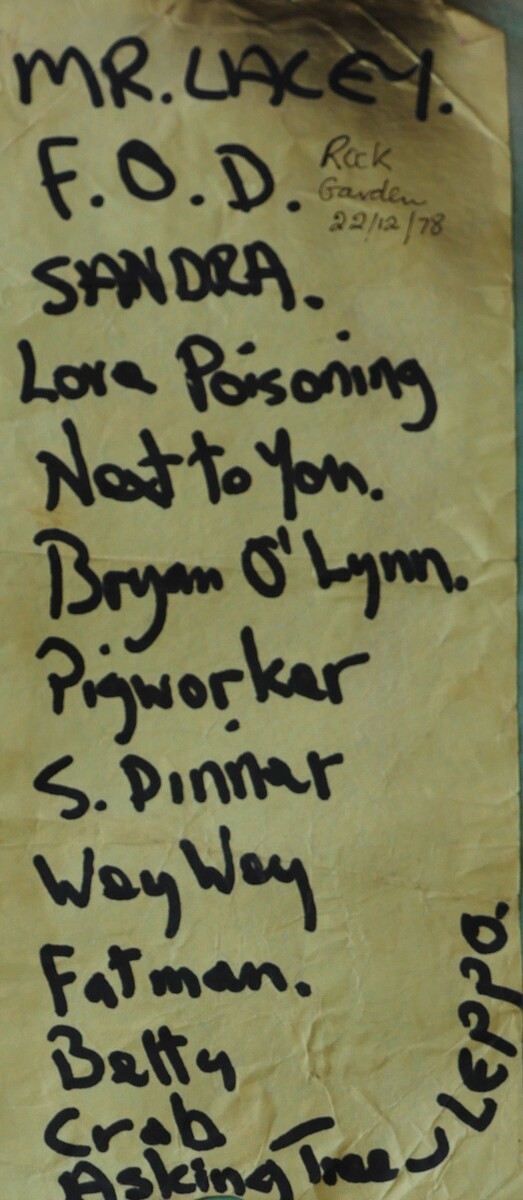 MR. LACEY.
F.O.D.
Rock
Garden
22/12/78
SANDRA.
Love Poisoning
Next to You.
Bryan O'Lynn.
Pigworker
S. Dinner
Way Way
Fatman.
Betty
Crab
Asking Tree
LEPPO.